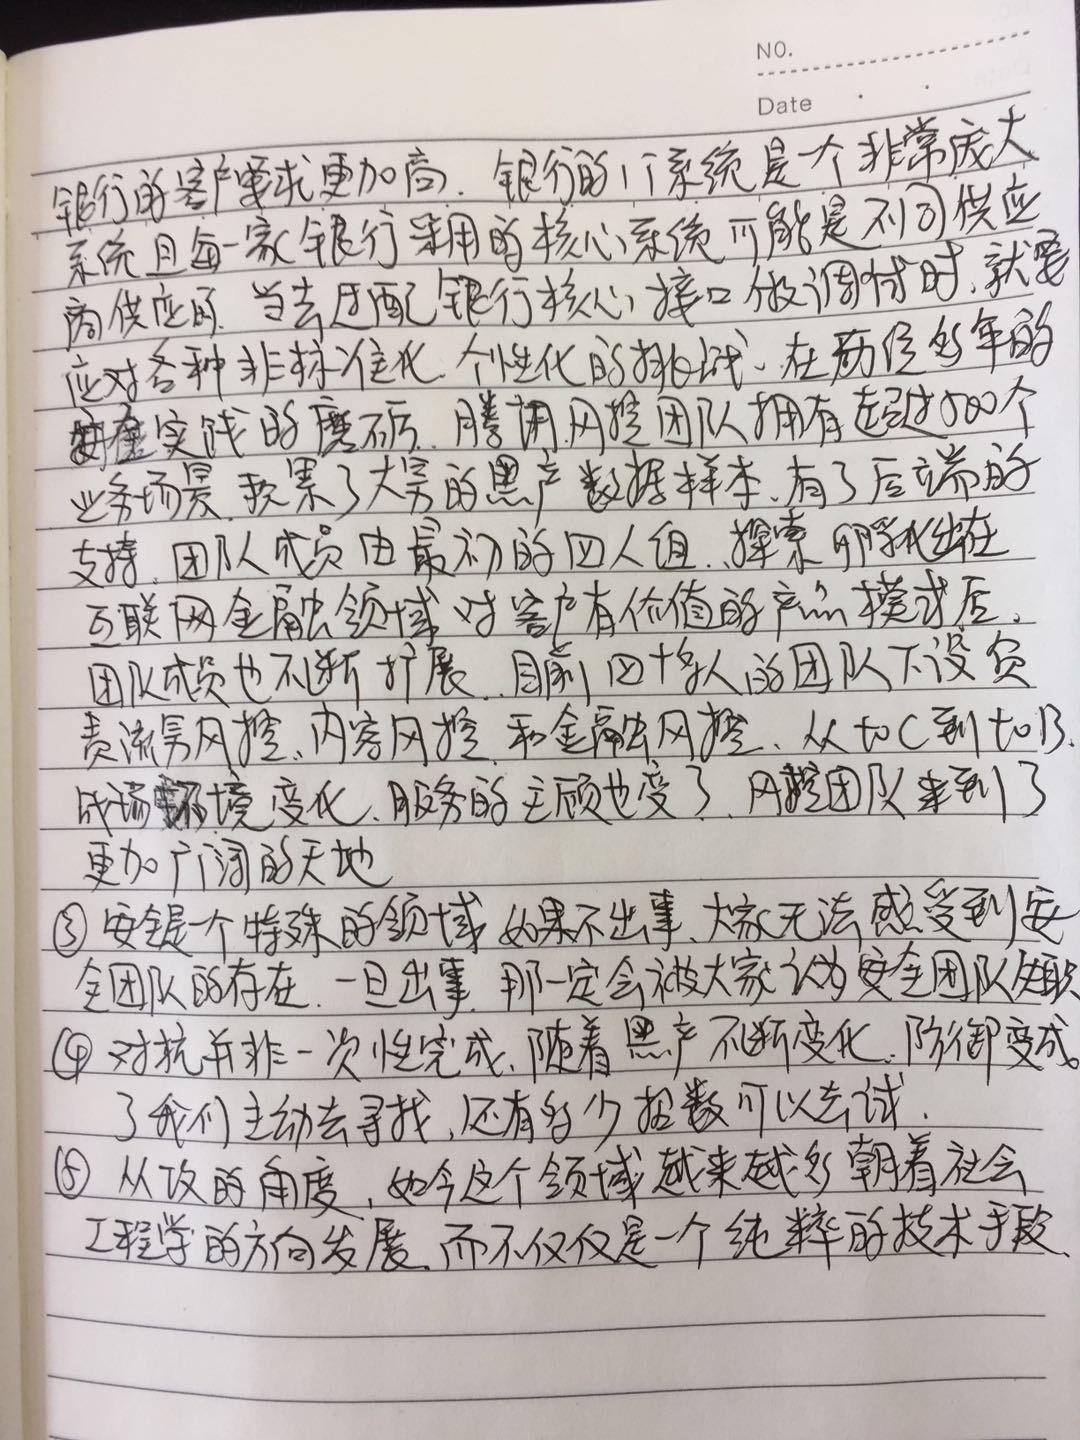 NO.
Date
银行的客户要求更加高、银行的IT系统是一个非常庞大
系统且每一家银行采用的核心系统可能是不同供应
商供应的、当去适配银行核心接口做调试时、就要
应对各种非标准化、个性化的挑战、在 多年的
安全实践的磨砺、腾讯风控团队拥有超过500个
业务场景、积累了大量的黑产数据样本、有了后端的
支持、团队成员由最初的四人组、探索 出在
互联网金融领域对客户有价值的产品模式后、
团队成员也不断扩展、目前四十多人的团队下设负
责流量风控、内容风控、和金融风控、从to C到to B、
环境变化、服务的主顾也变了、风控团队来到了
更加广阔的天地
③ 安全是一个特殊的领域如果不出事、大家无法感受到安
全团队的存在、一旦出事、那一定会被大家认为安全团队失职
④ 对抗并非一次性完成、随着黑产不断变化、防御变成
了我们主动去寻找、还有多少招数可以去试、
⑤ 从攻的角度、如今这个领域越来越多朝着社会
工程学的方向发展、而不仅仅是一个纯粹的技术手段、